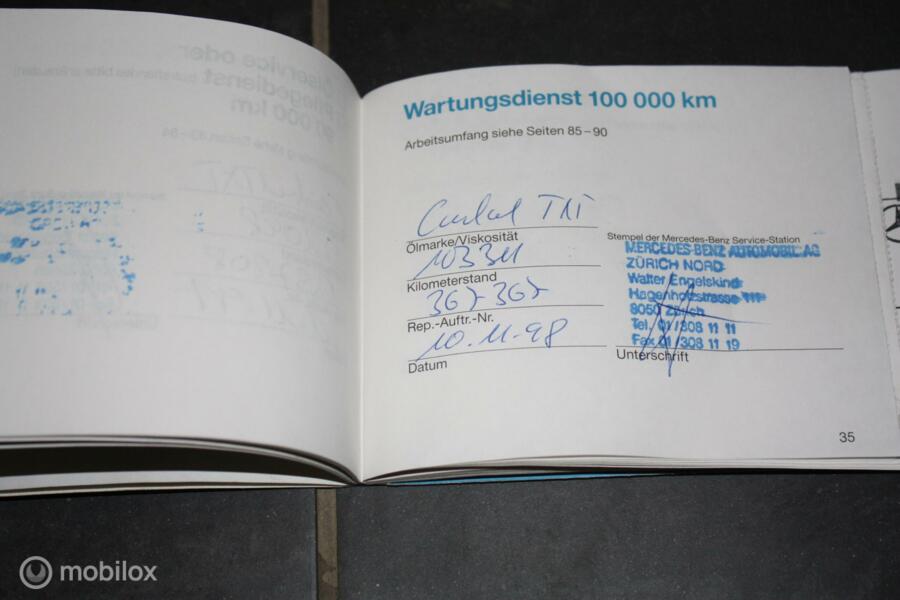 Wartungsdienst 100 000 km
Arbeitsumfang siehe Seiten 85–90
TNT
Ölmarke/Viskosität
Kilometerstand
367367
Rep.-Auftr.-Nr.
10.11.98
Datum
Stempel der Mercedes-Benz Service-Station
MERCEDES-BENZ AUTOMOBIL AG
ZÜRICH NORD
Walter Engelskind
Hagenholzstrasse 111
8050 Zürich
Tel. 01/308 11 11
Fax 01/308 11 19
Unterschrift
35
mobilox